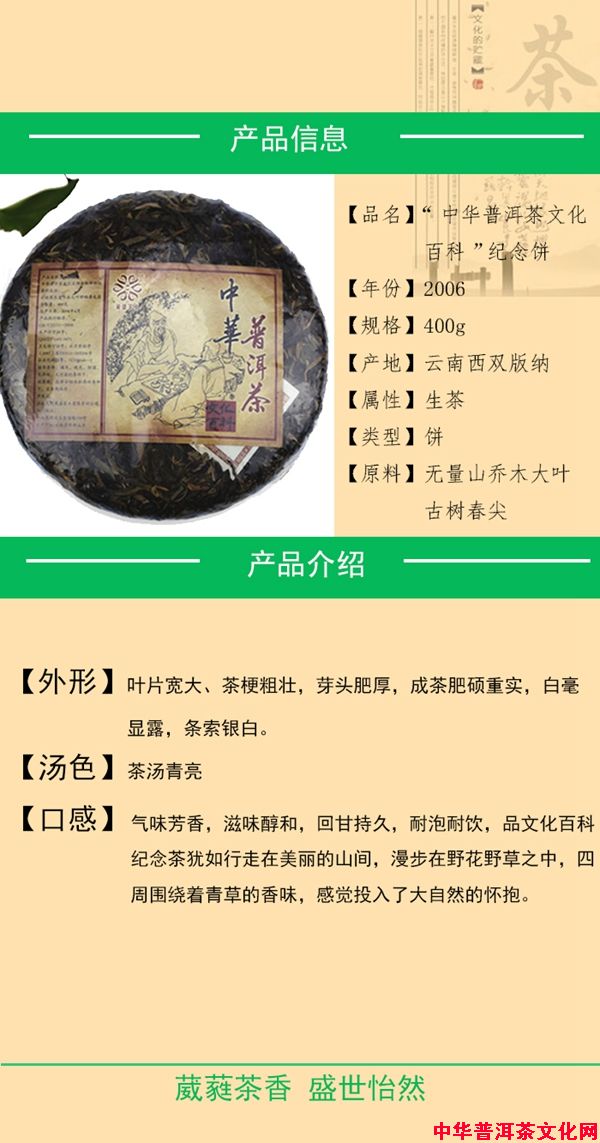 【文化的贮藏】
茶
产品信息
【品名】“中华普洱茶文化
百科”纪念饼
【年份】2006
【规格】400g
【产地】云南西双版纳
【属性】生茶
【类型】饼
【原料】无量山乔木大叶
古树春尖
中華
普洱茶
文化
百科
产品介绍
【外形】叶片宽大、茶梗粗壮，芽头肥厚，成茶肥硕重实，白毫
显露，条索银白。
【汤色】茶汤青亮
【口感】气味芳香，滋味醇和，回甘持久，耐泡耐饮，品文化百科
纪念茶犹如行走在美丽的山间，漫步在野花野草之中，四
周围绕着青草的香味，感觉投入了大自然的怀抱。
葳蕤茶香 盛世怡然
中华普洱茶文化网